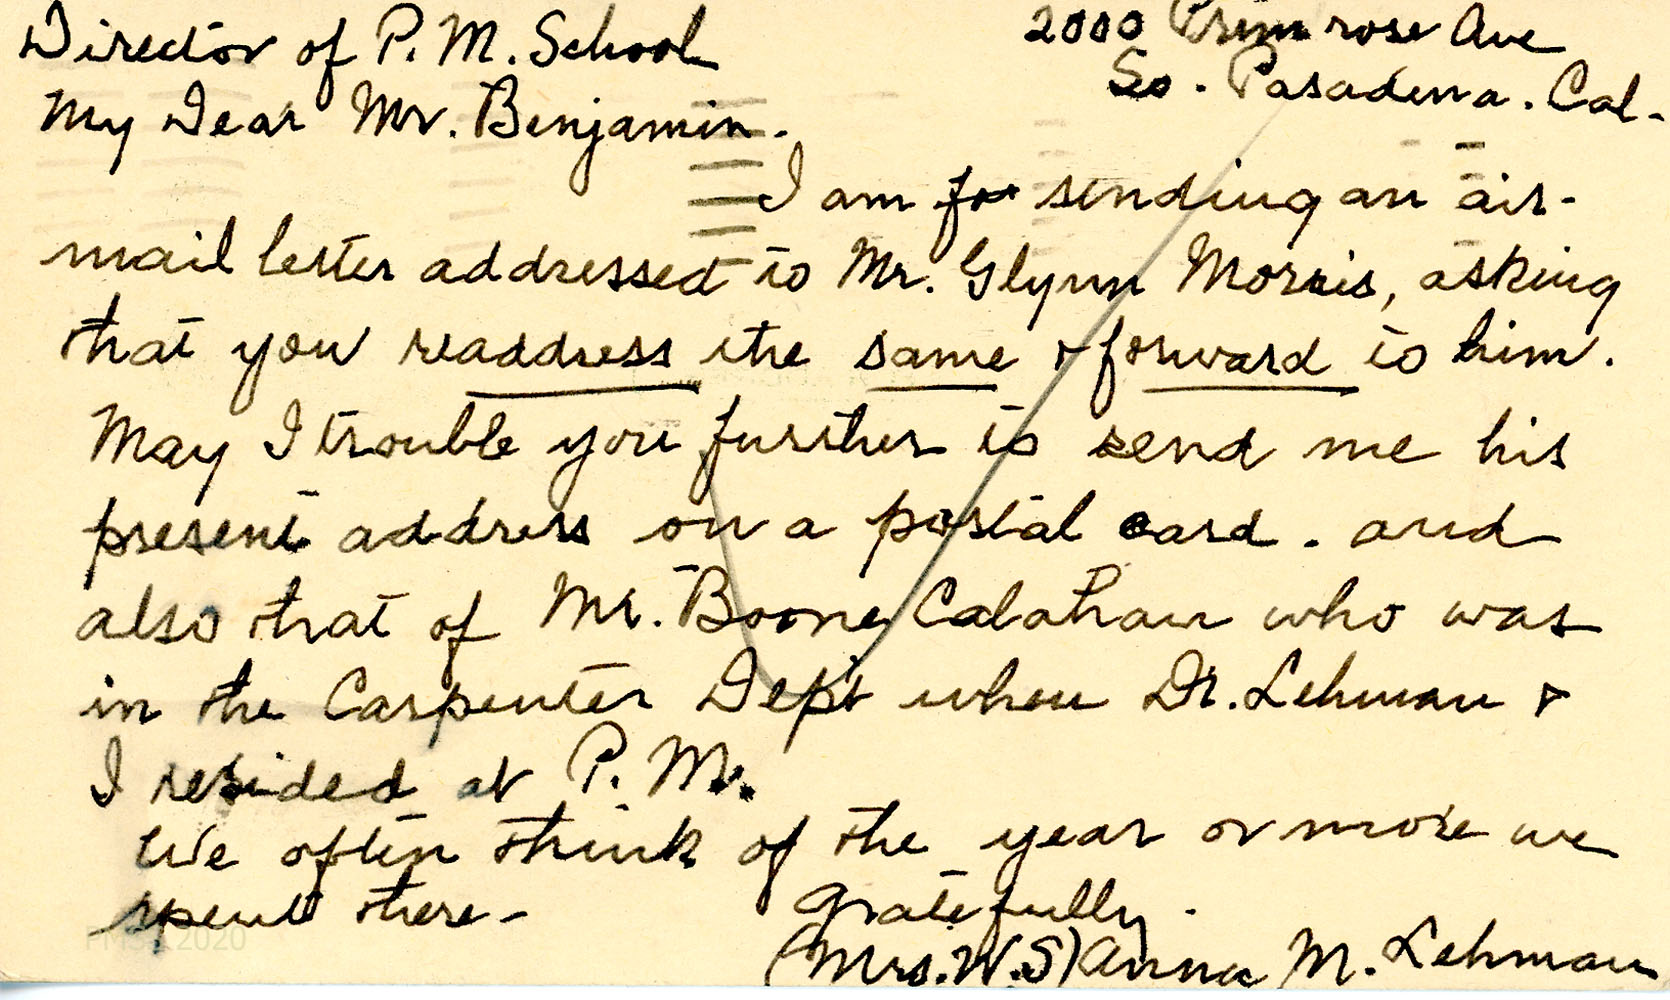 Director of P. M. School
2000 Primrose Ave
So. Pasadena. Cal.
My Dear Mr. Benjamin.
I am sending an air-
mail letter addressed to Mr. Glynn Morris, asking
that you readdress the same & forward to him.
May I trouble you further to send me his
present address on a postal card. and
also that of Mr. Boone Calahan who was
in the Carpenter Dep't when Dr. Lehman &
I resided at P. M.
We often think of the year or more we
spent there-
Gratefully.
(Mrs. W.S) Anna M. Lehman
PMSS 2020